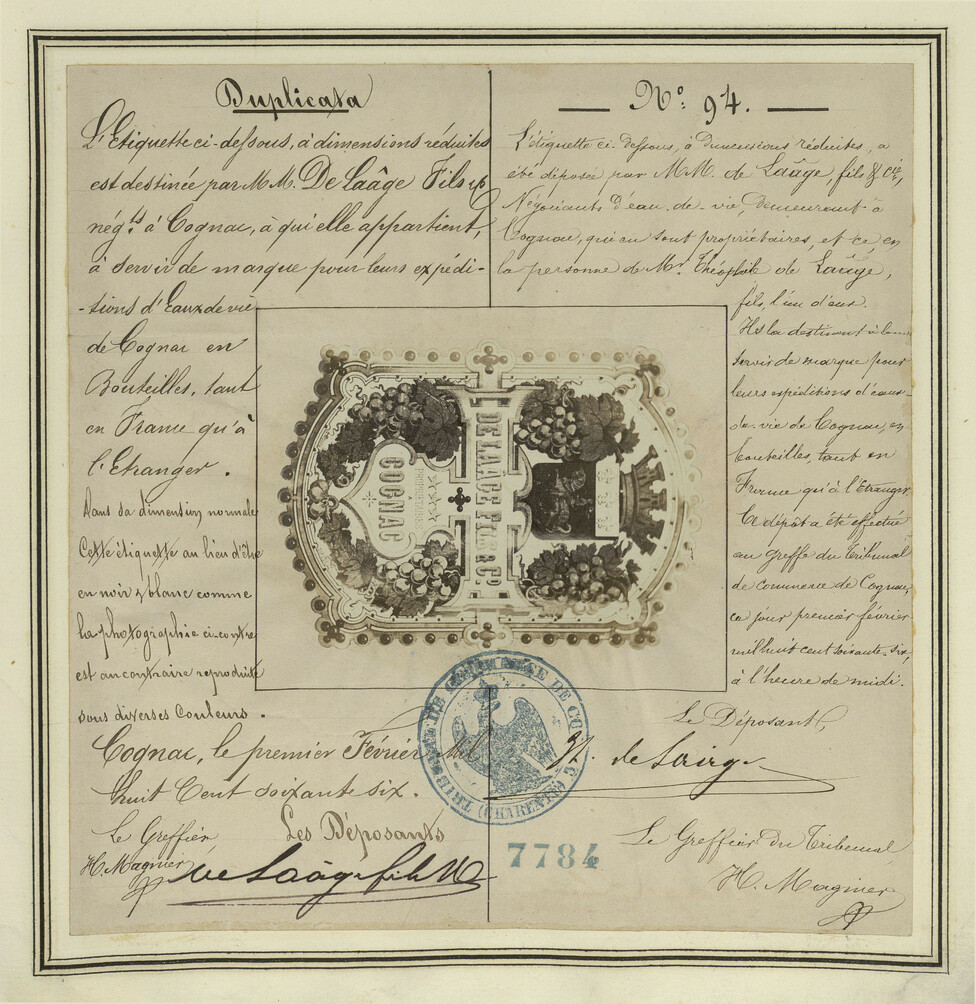 Duplicata
L'Etiquette ci-dessous, à dimensions réduites
est destinée par M M. De Laâge Fils &
négts à Cognac, à qui elle appartient,
à servir de marque pour leurs expédi-
-tions d'Eaux de vie
de Cognac en
Bouteilles, tant
en France qu'à
l'Etranger.
Dans sa dimension normale
Cette étiquette au lieu d'être
en noir & blanc comme
la photographie ci-contre
est au contraire reproduite
sous diverses Couleurs.
Cognac, le premier Février Mil
huit Cent soixante six.
Le Greffier
H. Magnier
Les Déposants
de Laâge fils &
No. 94.
L'étiquette ci-dessous, à dimensions réduites, a
été déposée par M M. de Laâge, fils & Cie,
Négociants d'eau-de-vie, demeurant à
Cognac, qui en sont propriétaires, et ce, en
la personne de Mr. Théophile de Laâge,
fils, l'un d'eux.
Ils la destinent à leur
servir de marque pour
leurs expéditions d'eaux-
de-vie de Cognac, en
bouteilles, tant en
France qu'à l'Etranger.
Ce dépôt a été effectué
au greffe du Tribunal
de commerce de Cognac,
ce jour premier février
mil huit cent soixante-six,
à l'heure de midi.
Le Déposant,
de Laâge
Le Greffier du Tribunal,
H. Magnier
DE LAAGE FILS & CO
COGNAC
TRIBUNAL DE COMMERCE DE COGNAC (CHARENTE)
7784